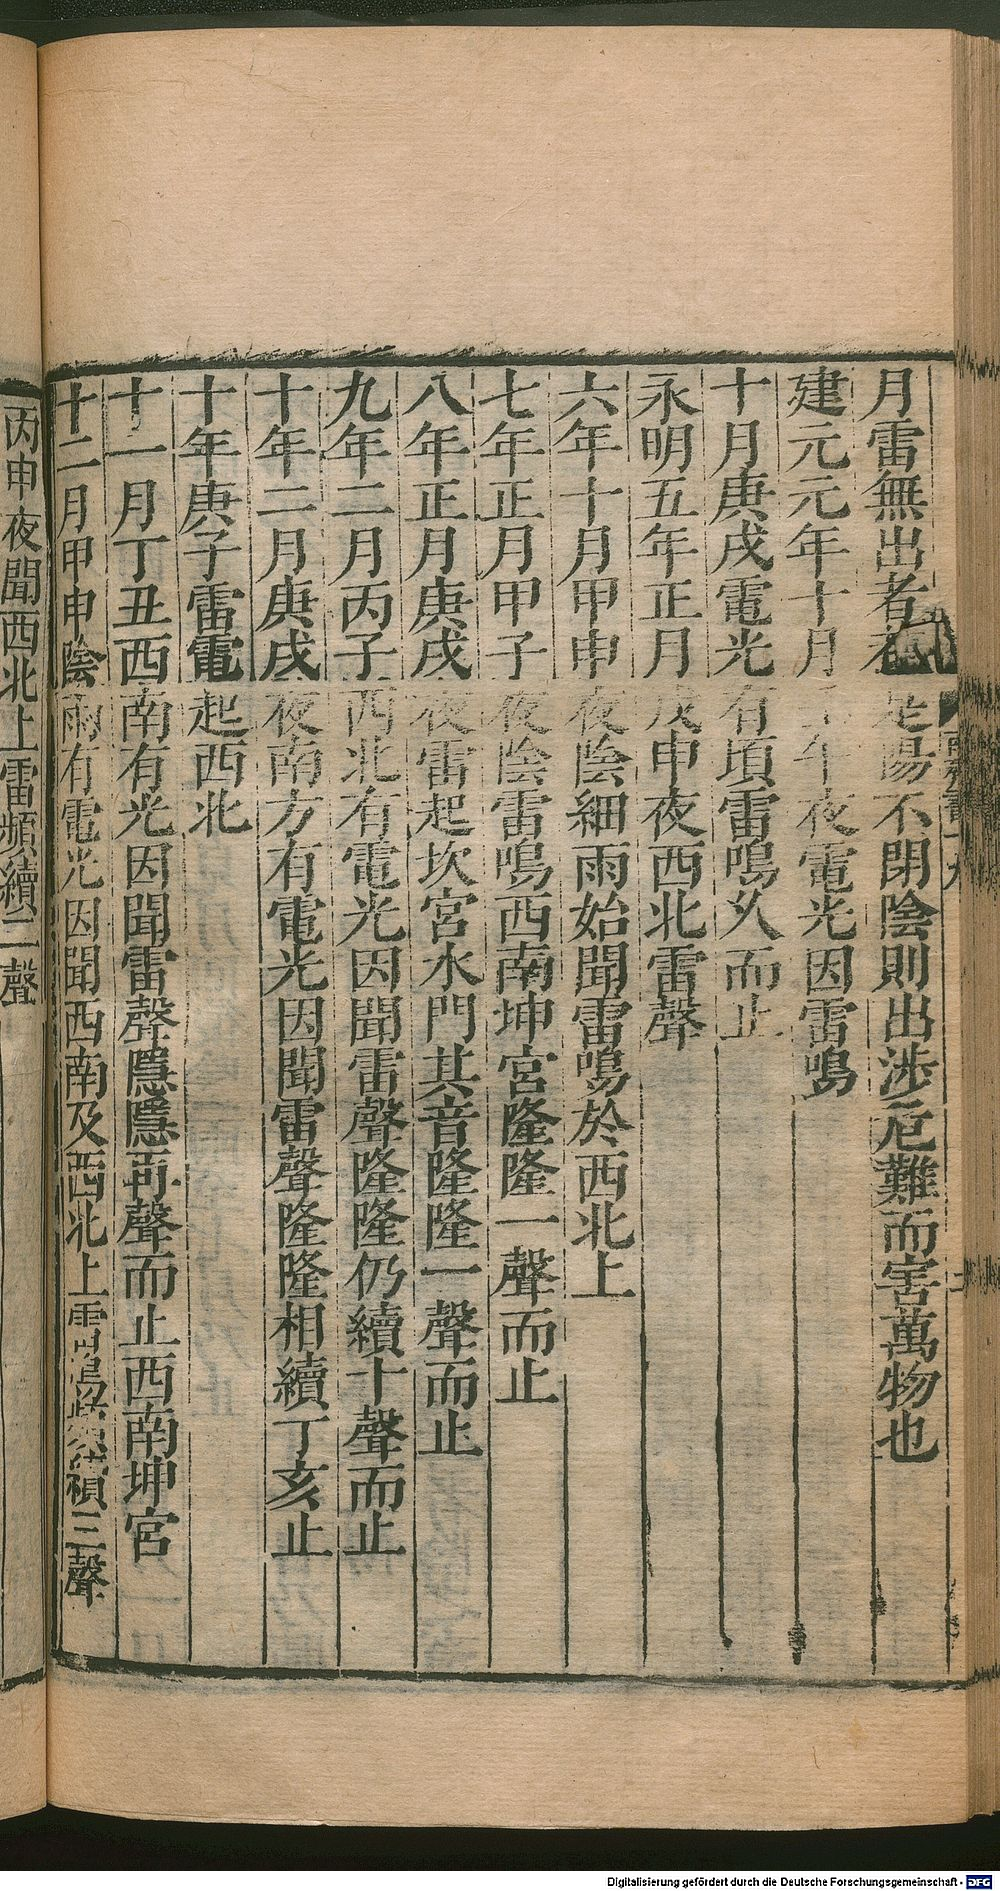 月雷無出者若是陽不閉陰則出涉危難而害萬物也
建元元年十月壬午夜電光因雷鳴
十月庚戌電光有頃雷鳴久而止
永明五年正月戊申夜西北雷聲
六年十月甲申夜陰細雨始聞雷鳴於西北上
七年正月甲子夜陰雷鳴西南坤宮隆隆一聲而止
八年正月庚戌夜雷起坎宮水門其音隆隆一聲而止
九年二月丙子西北有電光因聞雷聲隆隆仍續十聲而止
十年二月庚戌夜南方有電光因聞雷聲隆隆相續丁亥止
十年庚子雷電起西北
十一月丁丑西南有光因聞雷聲隱隱再聲而止西南坤宮
十二月甲申陰雨有電光因聞西南及西北上雷鳴頻續三聲
丙申夜聞西北上雷頻續二聲
南齊書十九
Digitalisierung gefördert durch die Deutsche Forschungsgemeinschaft - DFG